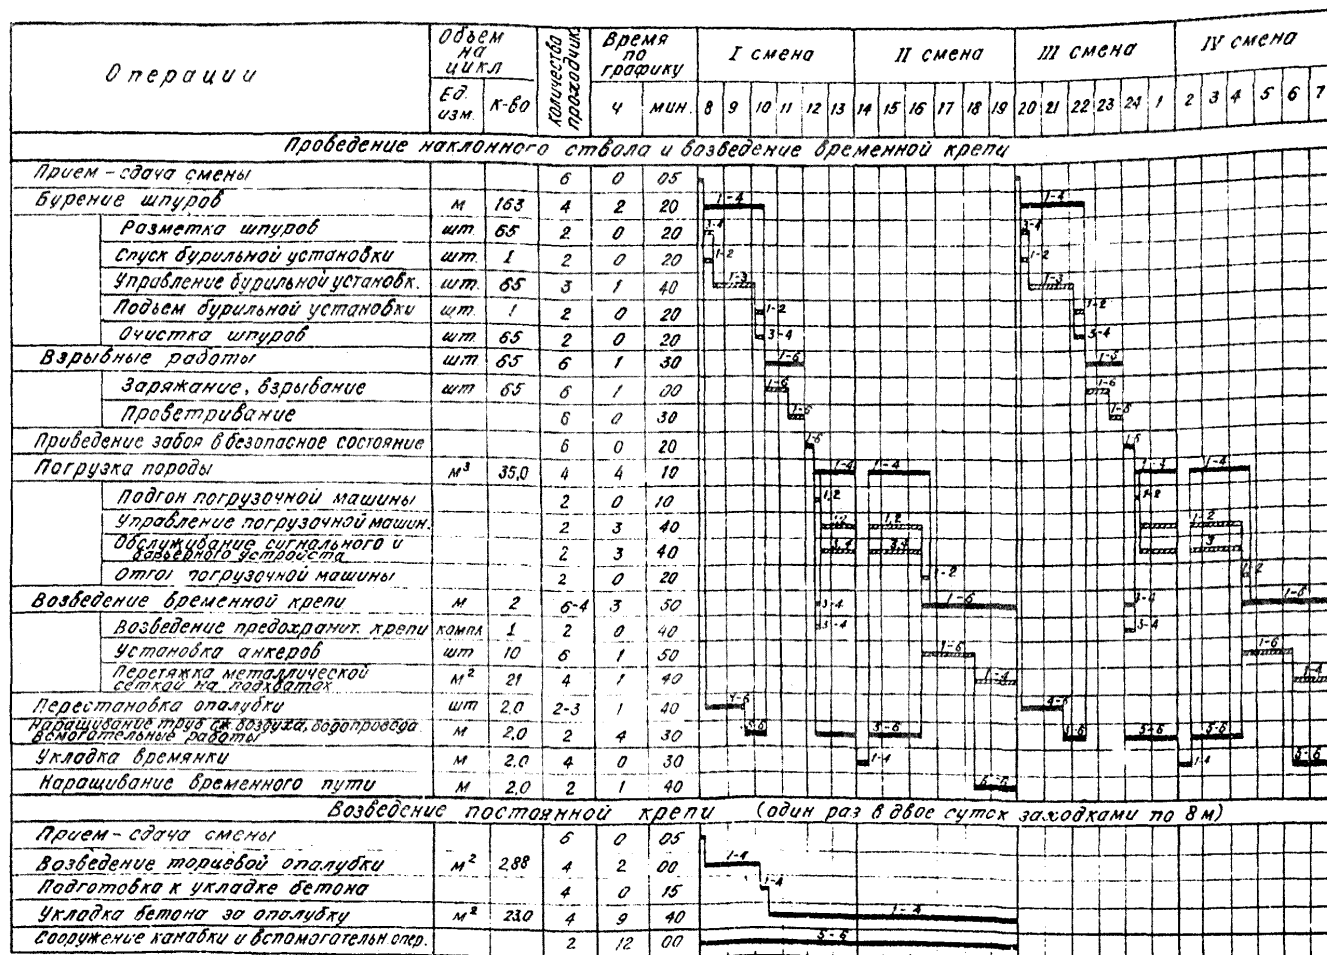 Операции
Объем на цикл
Количество проходчик.
Время по графику
I смена
II смена
III смена
IV смена
Ед. изм.
к-во
ч
мин.
8 9 10 11 12 13 14 15 16 17 18 19 20 21 22 23 24 1 2 3 4 5 6 7
Проведение наклонного ствола и возведение временной крепи
Прием-сдача смены 6 0 05
Бурение шпуров м 163 4 2 20 1-4 1-4
Разметка шпуров шт 65 2 0 20 3-4 3-4
Спуск бурильной установки шт. 1 2 0 20 1-2 1-2
Управление бурильной установк. шт. 65 3 1 40 1-3 1-3
Подъем бурильной установки шт. 1 2 0 20 1-2 1-2
Очистка шпуров шт. 65 2 0 20 3-4 3-4
Взрывные работы шт 65 6 1 30 1-6
Заряжание, взрывание шт 65 6 1 00 1-6 1-6
Проветривание 6 0 30 1-6
Приведение забоя в безопасное состояние 6 0 20
Погрузка породы м³ 35,0 4 4 10 1-4 1-4 1-4
Подгон погрузочной машины 2 0 10 1-2 1-2
Управление погрузочной машин. 2 3 40 1,2 1-2
Обслуживание сигнального и
барьерного устройств 2 3 40 3,4 3,4 3
Отгон погрузочной машины 2 0 20 1-2 1-2
Возведение временной крепи м 2 6-4 3 50 3-4 1-6 3-4
Возведение предохранит. крепи компл 1 2 0 40 3-4 3-4
Установка анкеров шт 10 6 1 50 1-6 1-6
Перетяжка металлической
сеткой на подхватах м² 21 4 1 40 1-4 1-4
Перестановка опалубки шт 2,0 2-3 1 40 4-6 4-6
Наращивание труб сж. воздуха, водопровода.
Вспомогательные работы м 2,0 2 4 30 5-6 5-6 5-6 5-6
Укладка времянки м 2,0 4 0 30 1-4 1-4 5-6
Наращивание временного пути м 2,0 2 1 40
Возведение постоянной крепи (один раз в двое суток заходками по 8 м)
Прием-сдача смены 6 0 05
Возведение торцевой опалубки м² 2,88 4 2 00 1-4
Подготовка к укладке бетона 4 0 15 1-4
Укладка бетона за опалубку м² 23,0 4 9 40 1-4
Сооружение канавки и вспомогательн. опер. 2 12 00 5-6